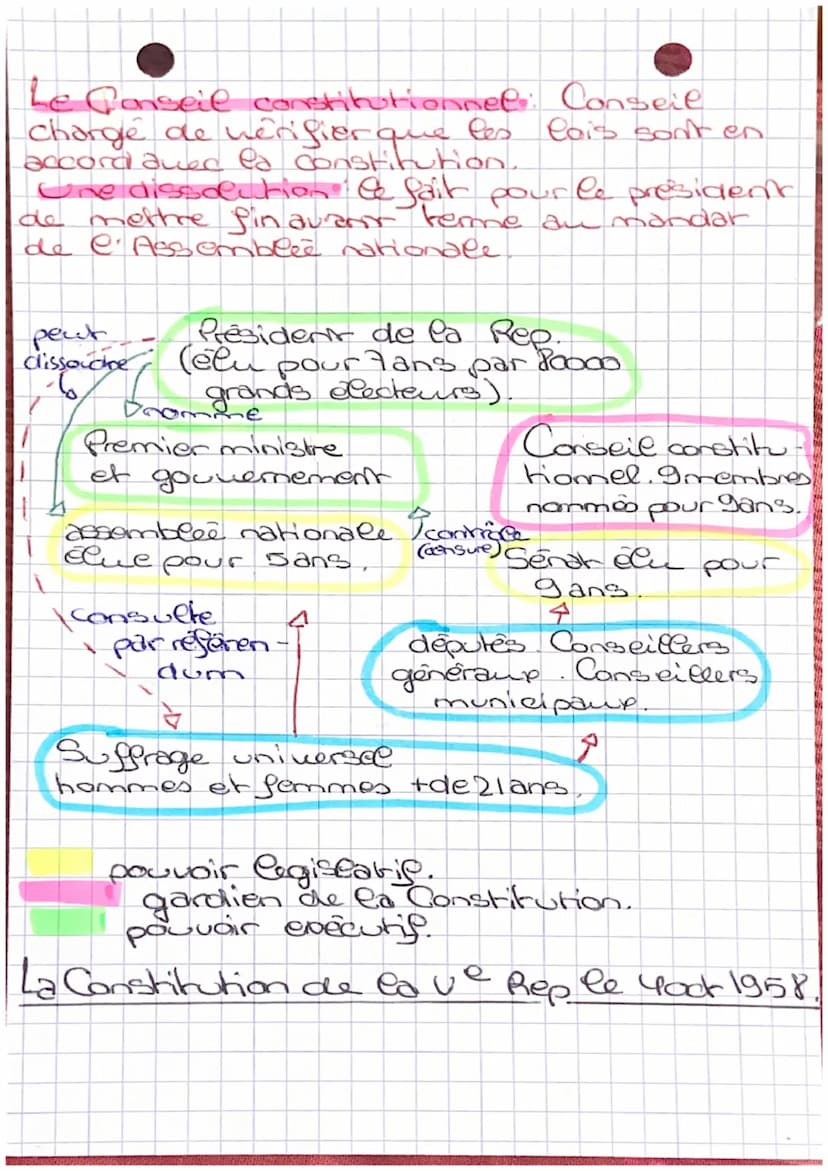 Le Conseil constitutionnel: Conseil
chargé de vérifier que les lois sont en
accord avec la constitution.
Une dissolution: le fait pour le président
de mettre fin avant terme au mandat
de l'Assemblée nationale.
peut
dissoudre
Président de la Rep.
(élu pour 7 ans par 80000
grands électeurs).
nomme
Premier ministre
et gouvernement
Conseil constitu-
tionnel. 9 membres
nommés pour 9 ans.
assemblée nationale
élue pour 5 ans.
contrôle
(censure)
Sénat élu pour
9 ans.
consulte
par référen-
dum
députés. Conseillers
généraux. Conseillers
municipaux.
Suffrage universel
hommes et femmes + de 21 ans.
pouvoir législatif.
gardien de la Constitution.
pouvoir exécutif.
La Constitution de la Ve Rep le 4 oct 1958.